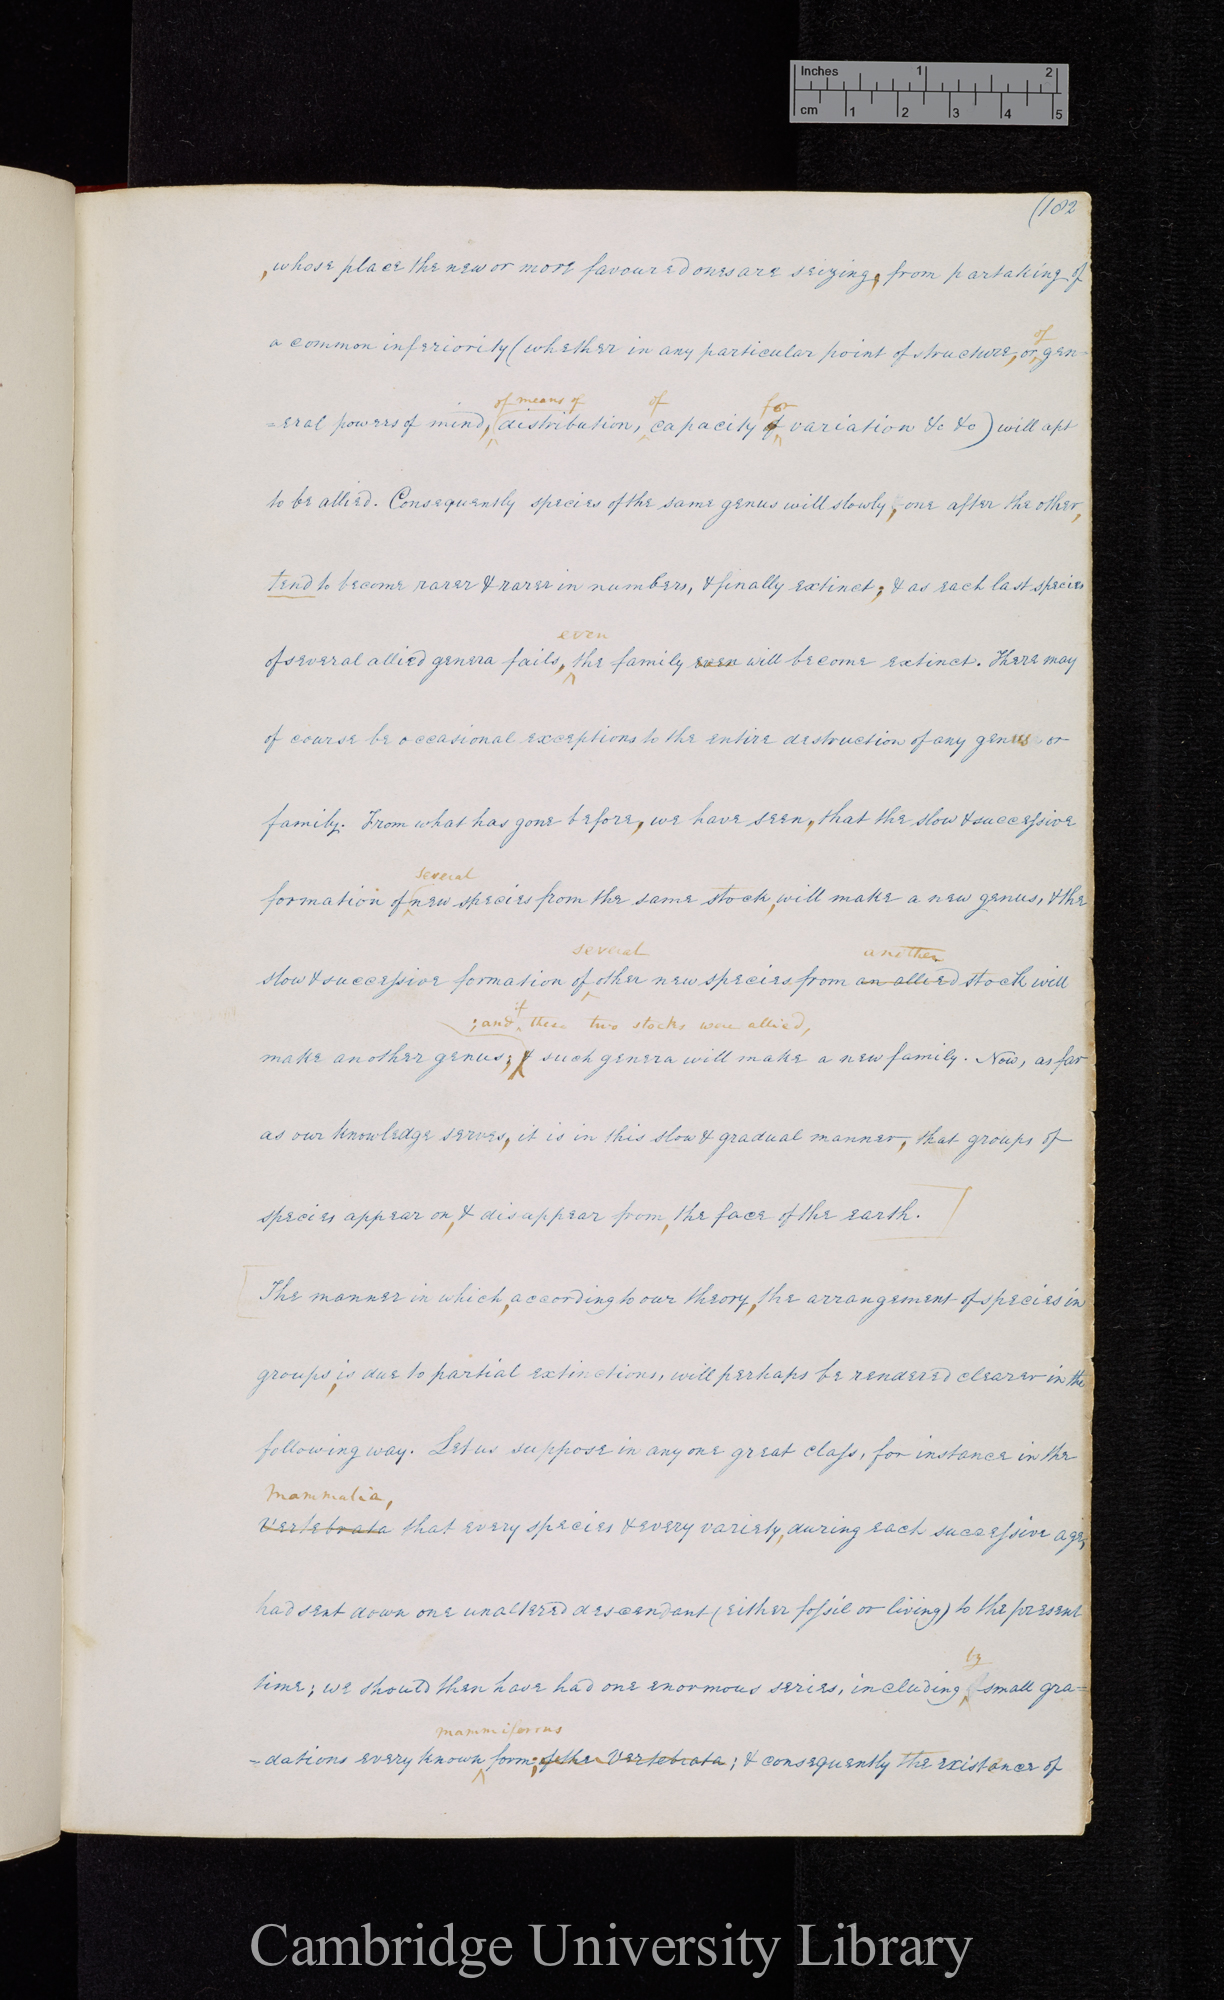 Inches 1 2
cm 1 2 3 4 5
(182
, whose place the new or more favoured ones are seizing, from partaking of
of
a common inferiority (whether in any particular point of structure, or gen-
of means of of for
=eral powers of mind, distribution, capacity of variation &c &c) will apt
to be allied. Consequently species of the same genus will slowly, one after the other,
tend to become rarer & rarer in numbers, & finally extinct; & as each last species
even
of several allied genera fails, the family even will become extinct. There may
of course be occasional exceptions to the entire destruction of any genus or
family. From what has gone before, we have seen, that the slow & successive
several
formation of new species from the same stock, will make a new genus, & the
several another
slow & successive formation of other new species from an allied stock will
; and if these two stocks were allied,
make another genus; & such genera will make a new family. Now, as far
as our knowledge serves, it is in this slow & gradual manner, that groups of
species appear on, & disappear from, the face of the earth.
The manner in which, according to our theory, the arrangement of species in
groups, is due to partial extinctions, will perhaps be rendered clearer in the
following way. Let us suppose in any one great class, for instance in the
Mammalia,
Vertebrata that every species & every variety, during each successive age,
had sent down one unaltered descendant (either fossil or living) to the present
time; we should then have had one enormous series, including
by
small gra=
mammiferous
-dations every known form; of the Vertebrata; & consequently the existance of
Cambridge University Library